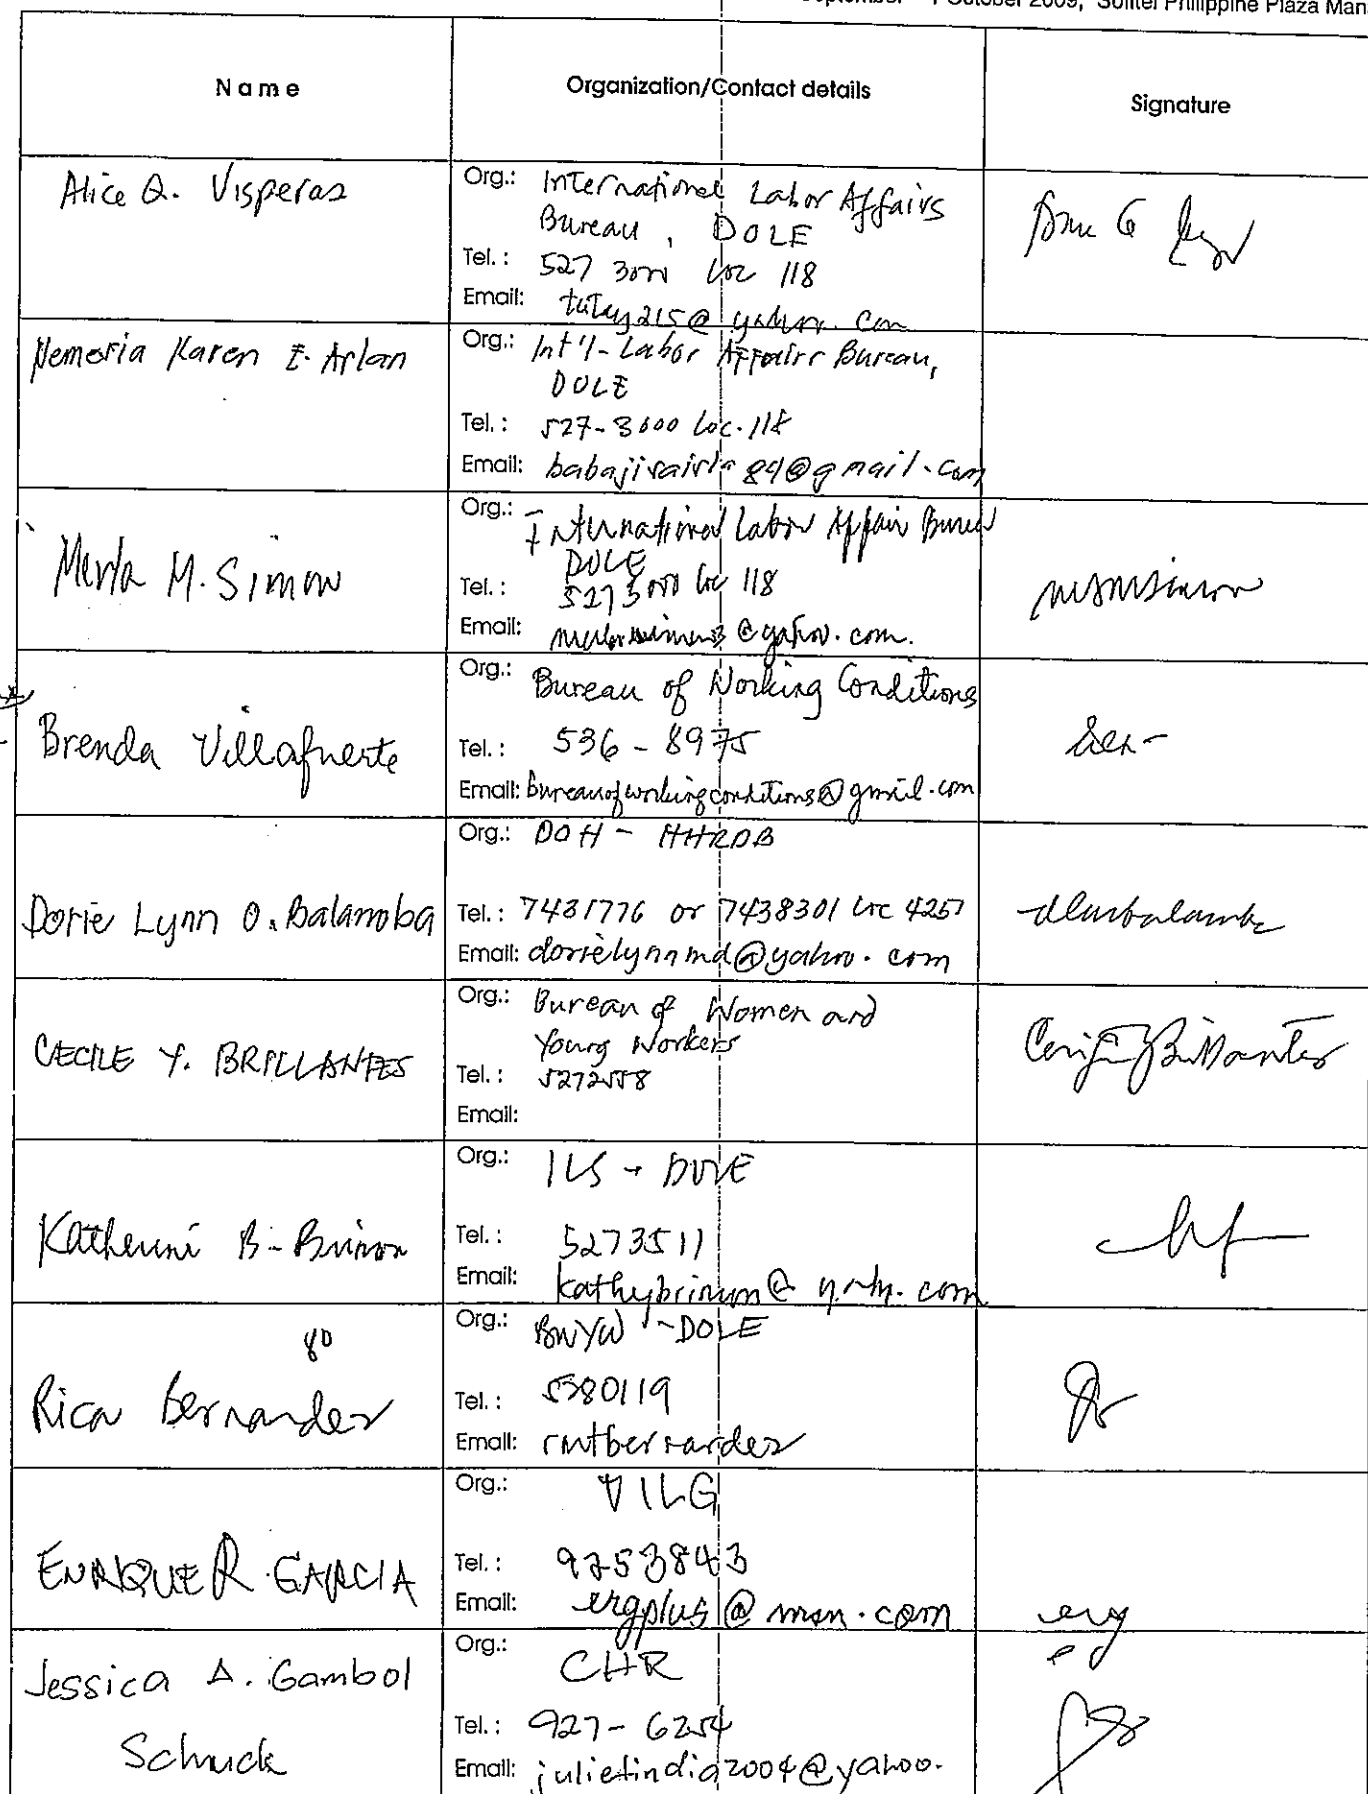 1 October 2009, Sofitel Philippine Plaza Man
Name
Organization/Contact details
Signature
Alice Q. Visperas
Org.: International Labor Affairs
Bureau, DOLE
Tel.: 527 3000 loc 118
Email:
Nemeria Karen E. Arlan
Org.: Int'l-Labor Affairs Bureau,
DOLE
Tel.: 527-3000 loc. 118
Email: @gmail.com
Merla M. Simon
Org.: International Labor Affair Bureau
DOLE
Tel.: 5273000 loc 118
Email:
Brenda Villafuerte
Org.: Bureau of Working Conditions
Tel.: 536-8975
Email: bureauofworkingconditions@gmail.com
Dorie Lynn O. Balanoba
Org.: DOH - HHRDB
Tel.: 7431776 or 7438301 loc 4251
Email: dorielynnmd@yahoo.com
CECILE Y. BRILLANTES
Org.: Bureau of Women and
Young Workers
Tel.: 5272558
Email:
Katherine B. Brimon
Org.: ILS - DOLE
Tel.: 5273511
Email:
80
Rica Bernardez
Org.: BWYW - DOLE
Tel.: 5280119
Email: rmtbernardez
ENRIQUE R. GARCIA
Org.: DILG
Tel.: 9253843
Email: ergplus@msn.com
erg
Jessica A. Gambol
Schuck
Org.: CHR
Tel.: 927-6254
Email: julietindia2004@yahoo.